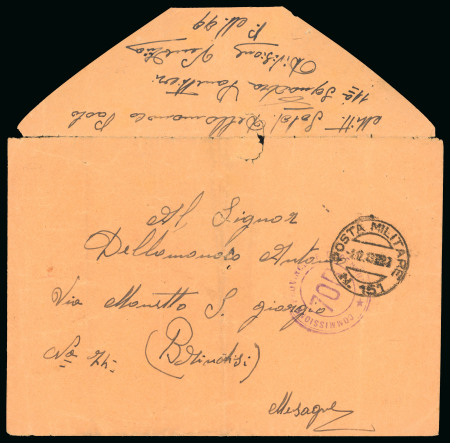 Mitt. Sold. Dellomonaco Paolo
11ª Squadra Panettieri
Divisione Venezia
P. M. 99
Al Signor
Dellomonaco Antonio
Via Maretto S. Giorgio
No 74 (Brindisi)
Mesagne
POSTA MILITARE
N. 151
COMMISSIONE